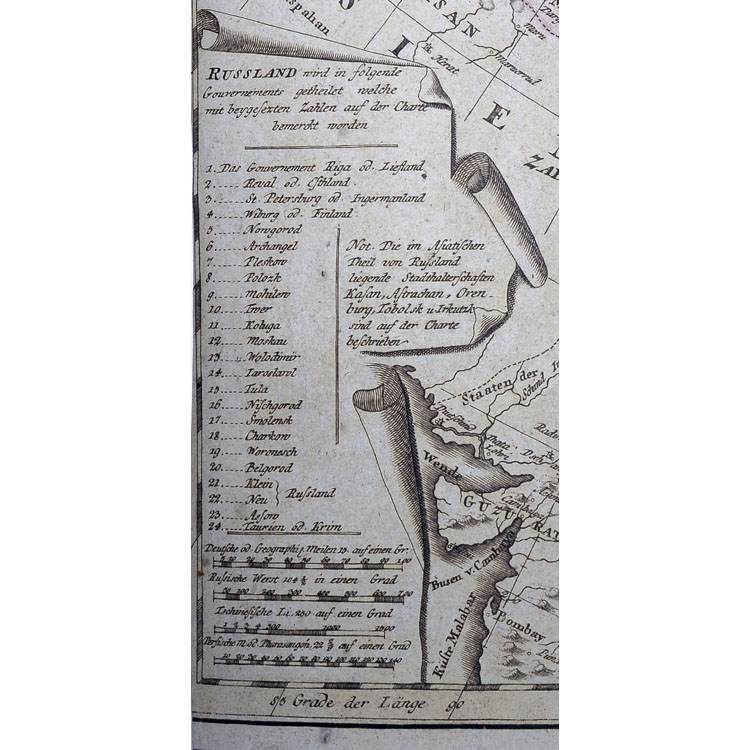 spahan
RUSSLAND wird in folgende
Gouvernements getheilet welche
mit beygesezten Zahlen auf der Charte
bemerckt worden
1. Das Gouvernement Riga od. Liefland
2..... Reval od. Esthland
3..... St. Petersburg od. Ingermanland
4..... Wiburg od. Finland
5..... Nowgorod
6..... Archangel
7..... Pleskow
8..... Polozk
9..... Mohilew
10..... Twer
11..... Koluga
12..... Moskau
13..... Wolodimir
14..... Iaroslavl
15..... Tula
16..... Nischgorod
17..... Smolensk
18..... Charkow
19..... Woronesch
20..... Belgorod
21..... Klein
22..... Neu
Russland
23..... Assow
24..... Taurien od. Krim
Not. Die im Asiatischen
Theil von Russland
liegende Stadthalterschaften
Kasan, Astrachan, Oren-
burg, Tobolsk u Irkutzk
sind auf der Charte
beschrieben
Deutsche od. Geographis. Meilen 15. auf einen Gr.
Rusische Werst 104 ½ in einen Grad
Tschinesische Li. 250 auf einen Grad
Persische M. od. Pharasangen, 22 ½ auf einen Grad
85 Grade der Länge 90
SAN
I
E
Herat
Staaten der
Wende
GUZURAT
Busen v. Cambaya
Küste Malabar
Bombay
20